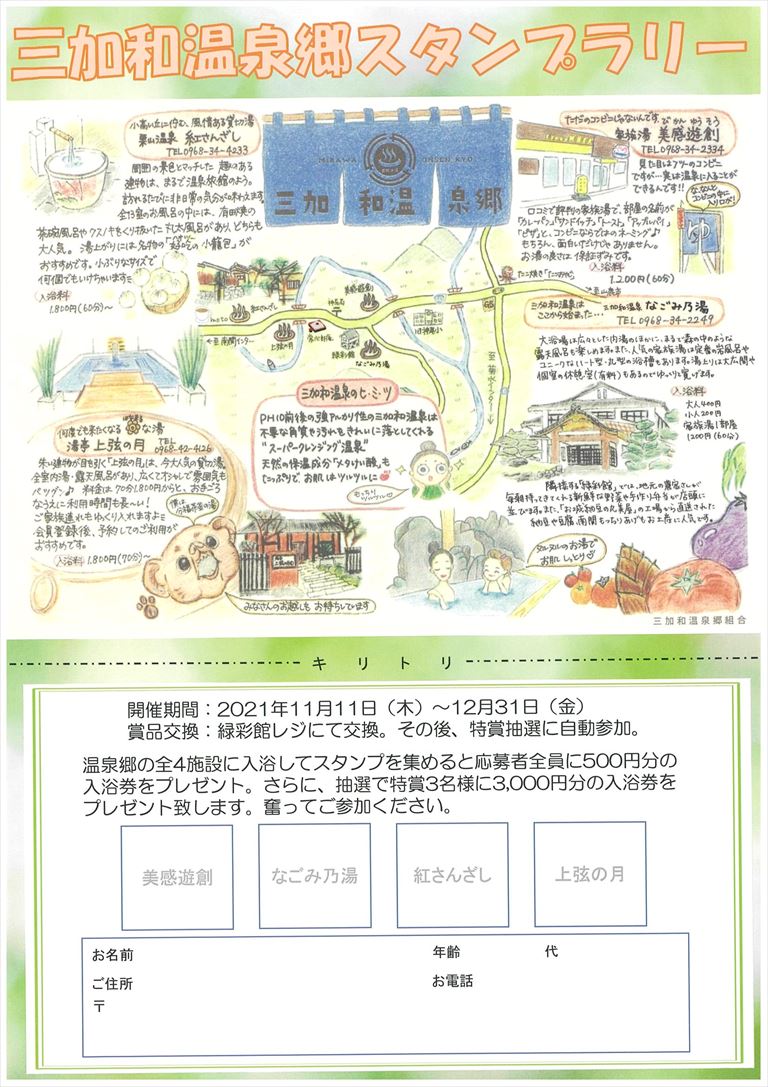 三加和温泉郷スタンプラリー
小高い丘に佇む、風情ある貸切湯
栗山温泉 紅さんざし
TEL0968-34-4233
周囲の景色とマッチした 趣のある
建物は、まるで温泉旅館のよう。
訪れるたびに非日常の気分が味わえます。
全13室のお風呂の中には、有田焼の
茶碗風呂やクスノキをくり抜いた丸太風呂があり、どちらも
大人気。湯上がりには名物の
がおすすめです。小ぶりなサイズで
何個でもいけちゃいますよ
入浴料
1.800円(60分)〜
MIKAWA ONSEN KYO
三加和温泉郷
ただのコンビニじゃないんです。
びかんゆうそう
家族湯 美感遊創
TEL0968-34-2334
見た目はフツーのコンビニ
ですが…実は温泉に入ることが
できるんです!!
な、なんと
コンビニの中に
入り口が!
ゆ
口コミで評判の家族湯で、部屋の名前が
「クレープ」「サンドイッチ」「トースト」「アップルパイ」
「ピザ」と、コンビニならではのネーミング♪
もちろん、面白いだけじゃありません。
お湯の良さは、保証ずみです。
入浴料
1.200円(60分)
紅さんざし
美感遊創
上弦の月
緑彩館
なごみ乃湯
旧神尾小
たこ焼き「たこやわら」
至山鹿市
至南関インター
至菊水インター
三加和温泉は
ここから始まった…
三加和温泉 なごみ乃湯
TEL0968-34-2249
大浴場は広々とした内湯のほかに、まるで森の中のような
露天風呂も楽しめます。また、人気の家族湯は定番の岩風呂や
ユニークなハート型・丸型の浴槽もあります。湯上りは大広間や
個室の休憩室(有料)もあるのでゆっくりと寛げます。
入浴料
大人400円
小人200円
家族湯1部屋
1200円(60分)
三加和温泉のヒ・ミ・ツ
PH10前後の強アルカリ性の三加和温泉は
不要な角質や汚れをきれいに落としてくれる
"スーパークレンジング温泉"
天然の保湿成分「メタけい酸」も
たっぷりで、お肌はツルツルに
もっちり
ツルツル
何度でも来たくなる な湯
湯亭 上弦の月
TEL
0968-42-4126
朱い建物が目を引く「上弦の月」は、今大人気の貸切湯。
全室内湯・露天風呂があり、広くてオシャレで雰囲気も
バツグン♪ 料金は70分1.800円からと、おまごろ
なうえに利用時間も長〜い!
ご家族連れもゆっくり入れますよ
会員登録後、予約してのご利用が
おすすめです。
入浴料 1.800円(70分)〜
僕は
分福茶釜の湯
みなさんのお越しを お待ちしています
隣接する「緑彩館」では、地元の農家さんが
毎朝持ってきてくれる新鮮な野菜や手作り弁当が店頭に
並びます。また、「お城納豆の丸美屋」の工場から直送された
納豆や豆腐、南関もっちりあげもお土産に人気です。
ツルツルのお湯で
お肌しっとり♡
三加和温泉郷組合
キリトリ
開催期間:2021年11月11日(木)~12月31日(金)
賞品交換:緑彩館レジにて交換。その後、特賞抽選に自動参加。
温泉郷の全4施設に入浴してスタンプを集めると応募者全員に500円分の
入浴券をプレゼント。さらに、抽選で特賞3名様に3,000円分の入浴券を
プレゼント致します。奮ってご参加ください。
美感遊創 なごみ乃湯 紅さんざし 上弦の月
お名前 年齢 代
ご住所 お電話
〒